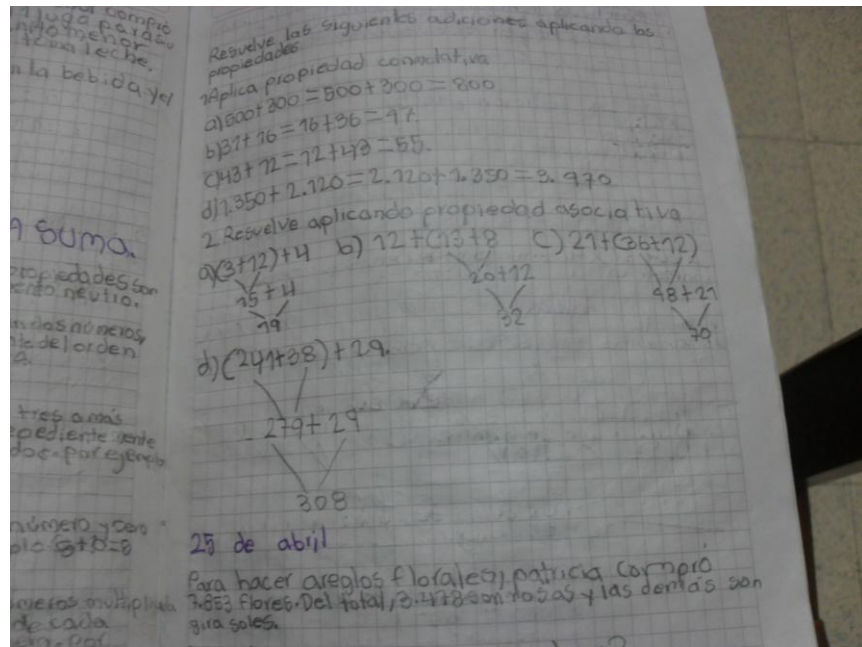 compró
jugo para su
menor
leche.
la bebida y el
a suma.
propiedades son
neutro.
números,
del orden
tres o más
ejemplo
número y cero
8+0=8
de cada
por
Resuelve las siguientes adiciones aplicando las
propiedades
1 Aplica propiedad conmutativa
a) 500+300=500+300=800
b) 31+16=16+36=47
c) 43+12=12+43=55.
d) 1.350+2.120=2.120+1.350=3.470
2. Resuelve aplicando propiedad asociativa
a) (3+12)+4 b) 12+(13+8 c) 21+(36+12)
15+4 20+12 48+21
19 32 70
d) (241+38)+29.
279+29
308
25 de abril
Para hacer areglos florales, patricia compró
7.853 flores. Del total, 3.478 son rosas y las demás son
gira soles.